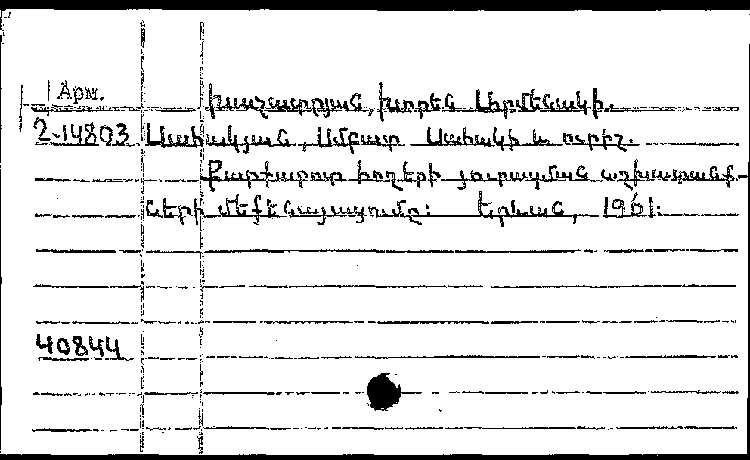 Арм.
Խաչատրյան, Խորեն Արմենակի.
2-14803 Սահակյան, Սմբատ Սահակի և ուրիշ.
Քարքարոտ հողերի յուրացման աշխատանք-
ների մեքենայացումը։ Երևան, 1961։
40844